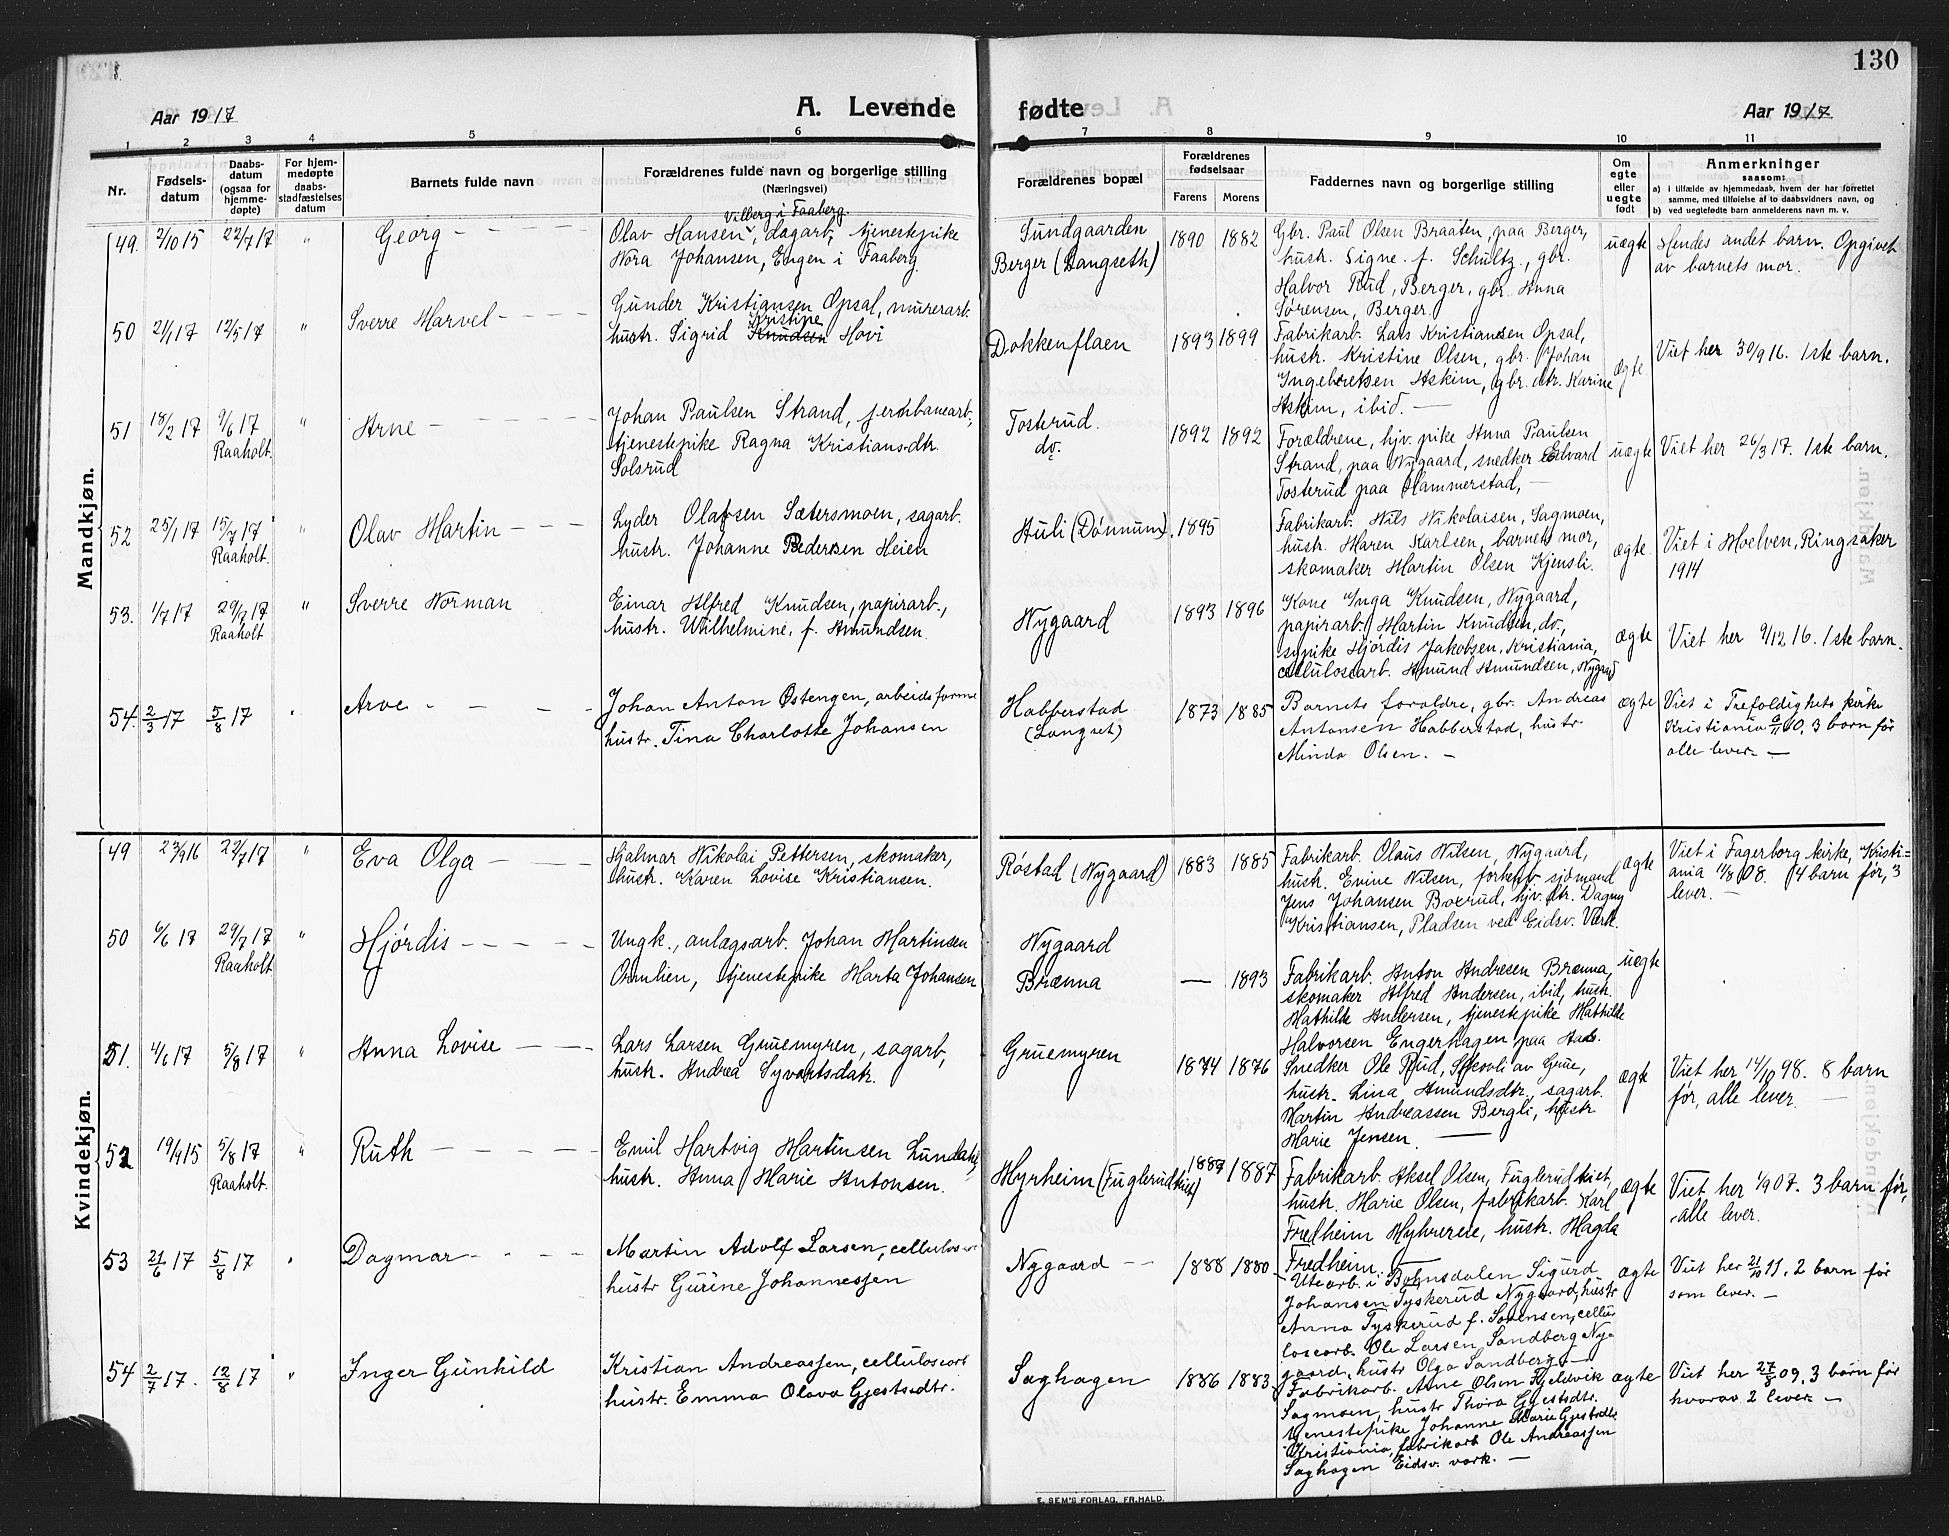 130
Aar 1917
A. Levende fødte
Aar 1917
1 2 3 4 5 6 7 8 9 10 11
Nr.
Fødsels-
datum
Daabs-
datum
(ogsaa for
hjemme-
døpte)
For hjem-
medøpte
daabs-
stadfæstelses
datum
Barnets fulde navn
Forældrenes fulde navn og borgerlige stilling
(Næringsvei)
Forældrenes bopæl
Forældrenes
fødselsaar
Farens Morens
Faddernes navn og borgerlige stilling
Om
egte
eller
uegte
født
Anmerkninger
saasom:
a) i tilfælde av hjemmedaab, hvem der har forrettet
samme, med tilføielse af to daabsvidners navn, og
b) ved uegtefødte barn anmelderens navn m. v.
Mandkjøn.
49. 2/10 15 22/7 17 " Georg
Vilberg i Faaberg
Olav Hansen, dagarb., tjenestepike
Nora Johansen, Engen i Faaberg.
Sundgaarden
Berger (Langseth)
1890 1882
Gbr. Paul Olsen Braaten, paa Berger,
hustr. Signe f. Schultz, gbr.
Halvor Rud, Berger, gbr. Anna
Sørensen, Berger.
uægte
Hendes andet barn. Opgivet
av barnets mor.
50 21/1 17 12/5 17 " Sverre Marvel
Gunder Kristiansen Opsal, murerarb.
Kristine
hustr. Sigrid Knudsen Hovi
Dokkenflaen
1893 1899
Fabrikarb. Lars Kristiansen Opsal,
hustr. Kristine Olsen, gbr. Johan
Ingebretsen Askim, gbr. dtr. Karine
Askim, ibid. —
ægte
Viet her 30/9 16. 1ste barn.
51 18/2 17 9/6 17 " Arne
Raaholt.
Johan Paulsen Strand, jernbanearb.,
tjenestepike Ragna Kristiansdtr.
Solsrud
Tosterud.
do.
1892 1892
Forældrene, hjv. pike Anna Paulsen
Strand, paa Nygaard, snedker Edvard
Tosterud paa Hammerstad, —
uægte
Viet her 26/3 17. 1ste barn.
52 25/1 17 15/7 17 Olav Martin
Raaholt.
Lyder Olafsen Sætersmoen, sagarb.
hustr. Johanne Pedersen Heien
Huli (Dønnum).
1895
Fabrikarb. Nils Nikolaisen, Sagmoen,
hustr. Maren Karlsen, barnets mor,
skomaker Martin Olsen Kjensli.
ægte.
Viet i Moelven, Ringsaker
1914
53. 1/7 17 29/7 17 " Sverre Norman
Raaholt
Einar Alfred Knudsen, papirarb.,
hustr. Wilhelmine, f. Amundsen.
Nygaard
1893 1896
Kone Inga Knudsen, Nygaard,
papirarb. Martin Knudsen, do.,
sypike Hjørdis Jakobsen, Kristiania,
cellulosearb. Amund Amundsen, Nygaard
ægte
Viet her 9/12 16. 1ste barn.
54. 2/3 17 5/8 17 Arve
Johan Anton Østengen, arbeidsform
hustr. Tina Charlotte Johansen
Habberstad
(Langset)
1873 1885
Barnets foreldre, gbr. Andreas
Antonsen Habberstad, hustr
Minda Olsen. —
ægte
Viet i Trefoldighets kirke
Kristiania 6/11 10, 3 barn før
alle lever. —
Kvindekjøn.
49 23/9 16 22/7 17 " Eva Olga
Hjalmar Nikolai Pettersen, skomaker,
hustr. Karen Lovise Kristiansen.
Røstad (Nygaard)
1883 1885
Fabrikarb. Olaus Nilsen, Nygaard,
hustr. Evine Nilsen, forhenv. sjømand
Jens Johansen Boxrud, hjv. dtr. Dagny
Kristiansen, Pladsen ved Eidsv. Værk.
ægte
Viet i Fagerborg kirke, Kristi=
ania 1/8 08. 4 barn før, 3
lever. —
50 6/6 17 29/7 17 " Hjørdis
Raaholt
Ungk., anlægsarb. Johan Martinsen
Ormlien, tjenestepike Marta Johansen
Nygaard
Brænna
— 1893
Fabrikarb. Anton Andresen Brænna,
skomaker Alfred Andersen, ibid, hustr.
Mathilde Andersen, tjenestepike Mathilde
Halvorsen Engerhagen, paa Aas.
uægte
51. 4/6 17 5/8 17 " Anna Lovise
Lars Larsen Gruemyren, sagarb.,
hustr. Andrea Syvertsdatr.
Gruemyren
1874 1876
Snedker Ole Rud, Skovli av Grue,
hustr. Lina Amundsdtr., sagarb.
Martin Andreassen Bergli, hustr.
Marie Jensen. —
ægte
Viet her 14/10 98. 8 barn
før, alle lever. —
52 19/9 15 5/8 17 " Ruth
Raaholt.
Emil Hartvig Martinsen Lundahl,
hustr. Anna Marie Antonsen.
Myrheim (Fuglerudkiet)
1887 1887
Fabrikarb. Aksel Olsen, Fuglerudkiet,
hustr. Marie Olsen, fabrikarb. Karl
Fredheim Myhrerene, hustr. Magda
Fredheim. —
ægte
Viet her 1/9 07. 3 barn før,
alle lever.
53 21/6 17 5/8 17 Dagmar
Martin Adolf Larsen, cellulosearb
hustr Gurine Johannessen
Nygaard
1888 1880
Utearb. i Bøhnsdalen Sigurd
Johansen Tyskerud Nygaard, hustr
Anna Tyskerud f. Sørensen, cellu
losearb. Ole Larsen Sandberg Ny
gaard, hustr Olga Sandberg. —
ægte
Viet her 21/10 11. 2 barn før
som lever. —
54 2/7 17. 12/8 17 " Inger Gunhild
Kristian Andreassen, cellulosearb
hustr. Emma Olava Gjestsdtr.
Saghagen
1886 1883
Fabrikarb. Arne Olsen Kjeldvik
Sagmoen, hustr Thora Gjestsdtr.
tjenestepike Johanne Marie Gjestsdtr
Kristiania, fabrikarb Ole Andreassen
Saghagen Eidsv. værk. —
ægte
Viet her 27/8 09. 3 børn før
hvorav 2 lever. —
E. SEM'S FORLAG, FR.HALD.